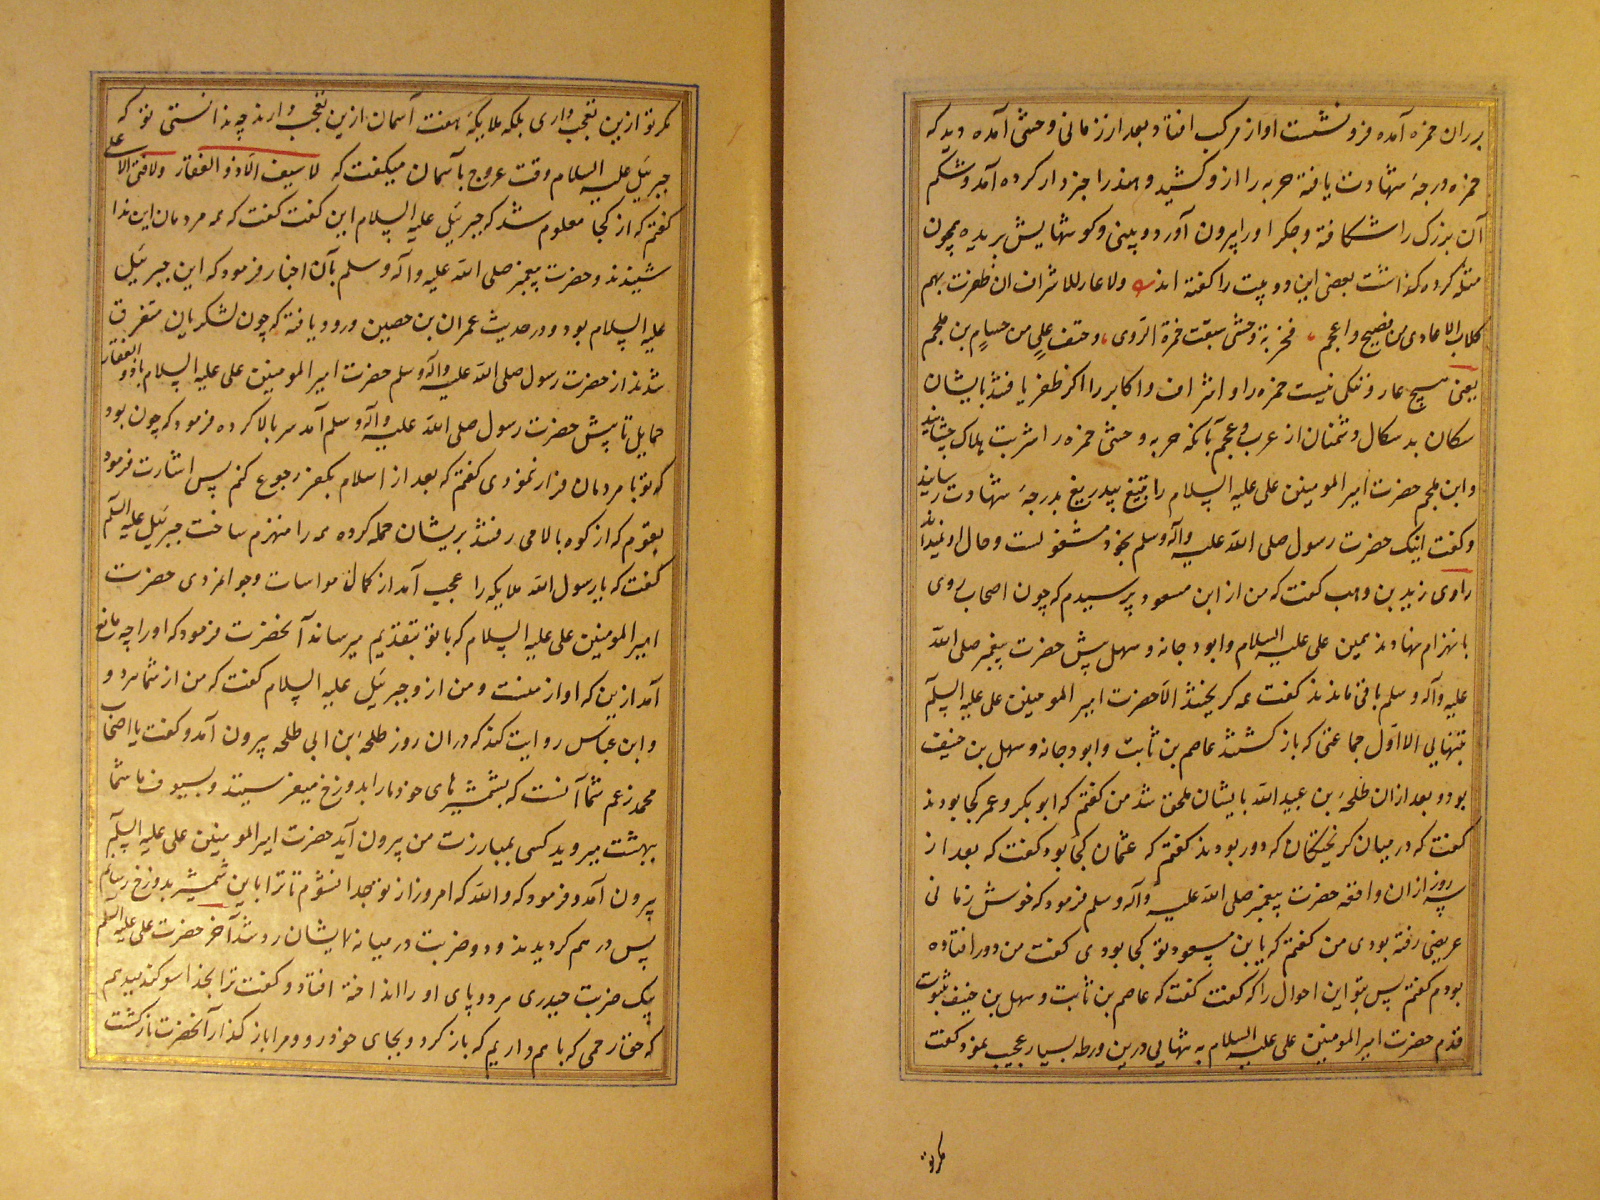 بر ران حمزه آمده فرو نشست او از مرکب افتاد و بعد از زمانی وحشی آمده دید که
حمزه درجهٔ شهادت یافته حربه را از و کشید و هند را خبردار کرده آمد و شکم
آن بزرک را شکافته و جکر او را بیرون آورد و بینی و کوشهایش بریده همچون
مثله کرده کذاشت بعضی این دو بیت را کفته اند ولا عار للاشراف ان ظفرت بهم
کلاب الاعادی من فصیح و اعجم فحربة وحشی سقت حمزة الردی و حتف علی من حسام بن ملجم
یعنی هیچ عار و ننکی نیست حمزه را و اشراف و اکابر را اکر ظفر یافتند بایشان
سکان بدسکال دشمنان از عرب و عجم بآنکه حربه وحشی حمزه را شربت هلاک چشانید
و ابن ملجم حضرت امیر المومنین علی علیه السلام را بتیغ بیدریغ بدرجهٔ شهادت رسانید
و کفت اینک حضرت رسول صلی الله علیه وآله وسلم بخود مشغولست و حال او نمیداند
راوی زید بن وهب کفت که من از ابن مسعود پرسیدم که چون اصحاب روی
بانهزام نهادند همین علی علیه السلام و ابو دجانه و سهل پیش حضرت پیغمبر صلی الله
علیه وآله وسلم باقی ماندند کفت همه کریختند الا حضرت امیر المومنین علی علیه السلام
بتنهایی الا اول جماعتی که باز کشتند عاصم بن ثابت و ابو دجانه و سهل بن حنیف
بود و بعد ازان طلحه بن عبید الله بایشان ملحق شد من کفتم که ابو بکر و عمر کجا بودند
کفت که در میان کریختکان که دور بودند کفتم که عثمان کجا بود کفت که بعد از
سه روز ازان واقعه حضرت پیغمبر صلی الله علیه وآله وسلم فرمود که خوش زمانی
عریضی رفته بودی من کفتم که یا بن مسعود تو کجا بودی کفت من دور افتاده
بودم کفتم پس بتو این احوال را که کفت کفت که عاصم بن ثابت و سهل بن حنیف ثبوت
قدم حضرت امیر المومنین علی علیه السلام به تنهایی درین ورطه بسیار عجیب نمود کفت
مکر تو
مکر تو ازین تعجب داری بلکه ملایکهٔ هفت آسمان ازین تعجب دارند چه ندانستی تو که
جبرئیل علیه السلام وقت عروج بآسمان میکفت که لا سیف الا ذو الفقار ولا فتی الا علی
کفتم که از کجا معلوم شد که جبرئیل علیه السلام این کفت کفت که همه مردمان این ندا
شنیدند و حضرت پیغمبر صلی الله علیه وآله وسلم بآن اخبار فرمود که این جبرئیل
علیه السلام بود و در حدیث عمران بن حصین ورود یافته که چون لشکریان متفرق
شدند از حضرت رسول صلی الله علیه وآله وسلم حضرت امیر المومنین علی علیه السلام با ذو الفقار
حمایل تا پیش حضرت رسول صلی الله علیه وآله وسلم آمد سر بالا کرده فرمود که چون بود
که تو با مردمان فرار ننمودی کفتم که بعد از اسلام بکفر رجوع کنم پس اشارت فرمود
بقوم که از کوه بالا می رفتند بریشان حمله کرده همه را منهزم ساخت جبرئیل علیه السلام
کفت که یا رسول الله ملایکه را عجب آمد از کمال مواسات و جوانمردی حضرت
امیر المومنین علی علیه السلام که با تو بتقدیم میرساند آنحضرت فرمود که او را چه مانع
آمد ازین که او از منست و من از و جبرئیل علیه السلام کفت که من از شما هر دو
و ابن عباس روایت کند که دران روز طلحهٔ بن ابی طلحه بیرون آمد و کفت یا اصحاب
محمد زعم شما آنست که بشمشیرهای خود ما را بدوزخ میفرستید و بسیوف ما شما
ببهشت میروید کسی بمبارزت من بیرون آید حضرت امیر المومنین علی علیه السلام
بیرون آمد و فرمود که والله که امروز از تو جدا نشوم تا ترا باین شمشیر بدوزخ رسانم
پس در هم کردیدند و دو ضربت در میانهٔ ایشان رد شد آخر حضرت علی علیه السلام
بیک ضربت حیدری هر دو پای او را انداخته افتاد و کفت ترا بخدا سوکند میدهم
که حق رحمی که با هم داریم که باز کرد و بجای خود رو و مرا باز کذار آنحضرت باز کشت